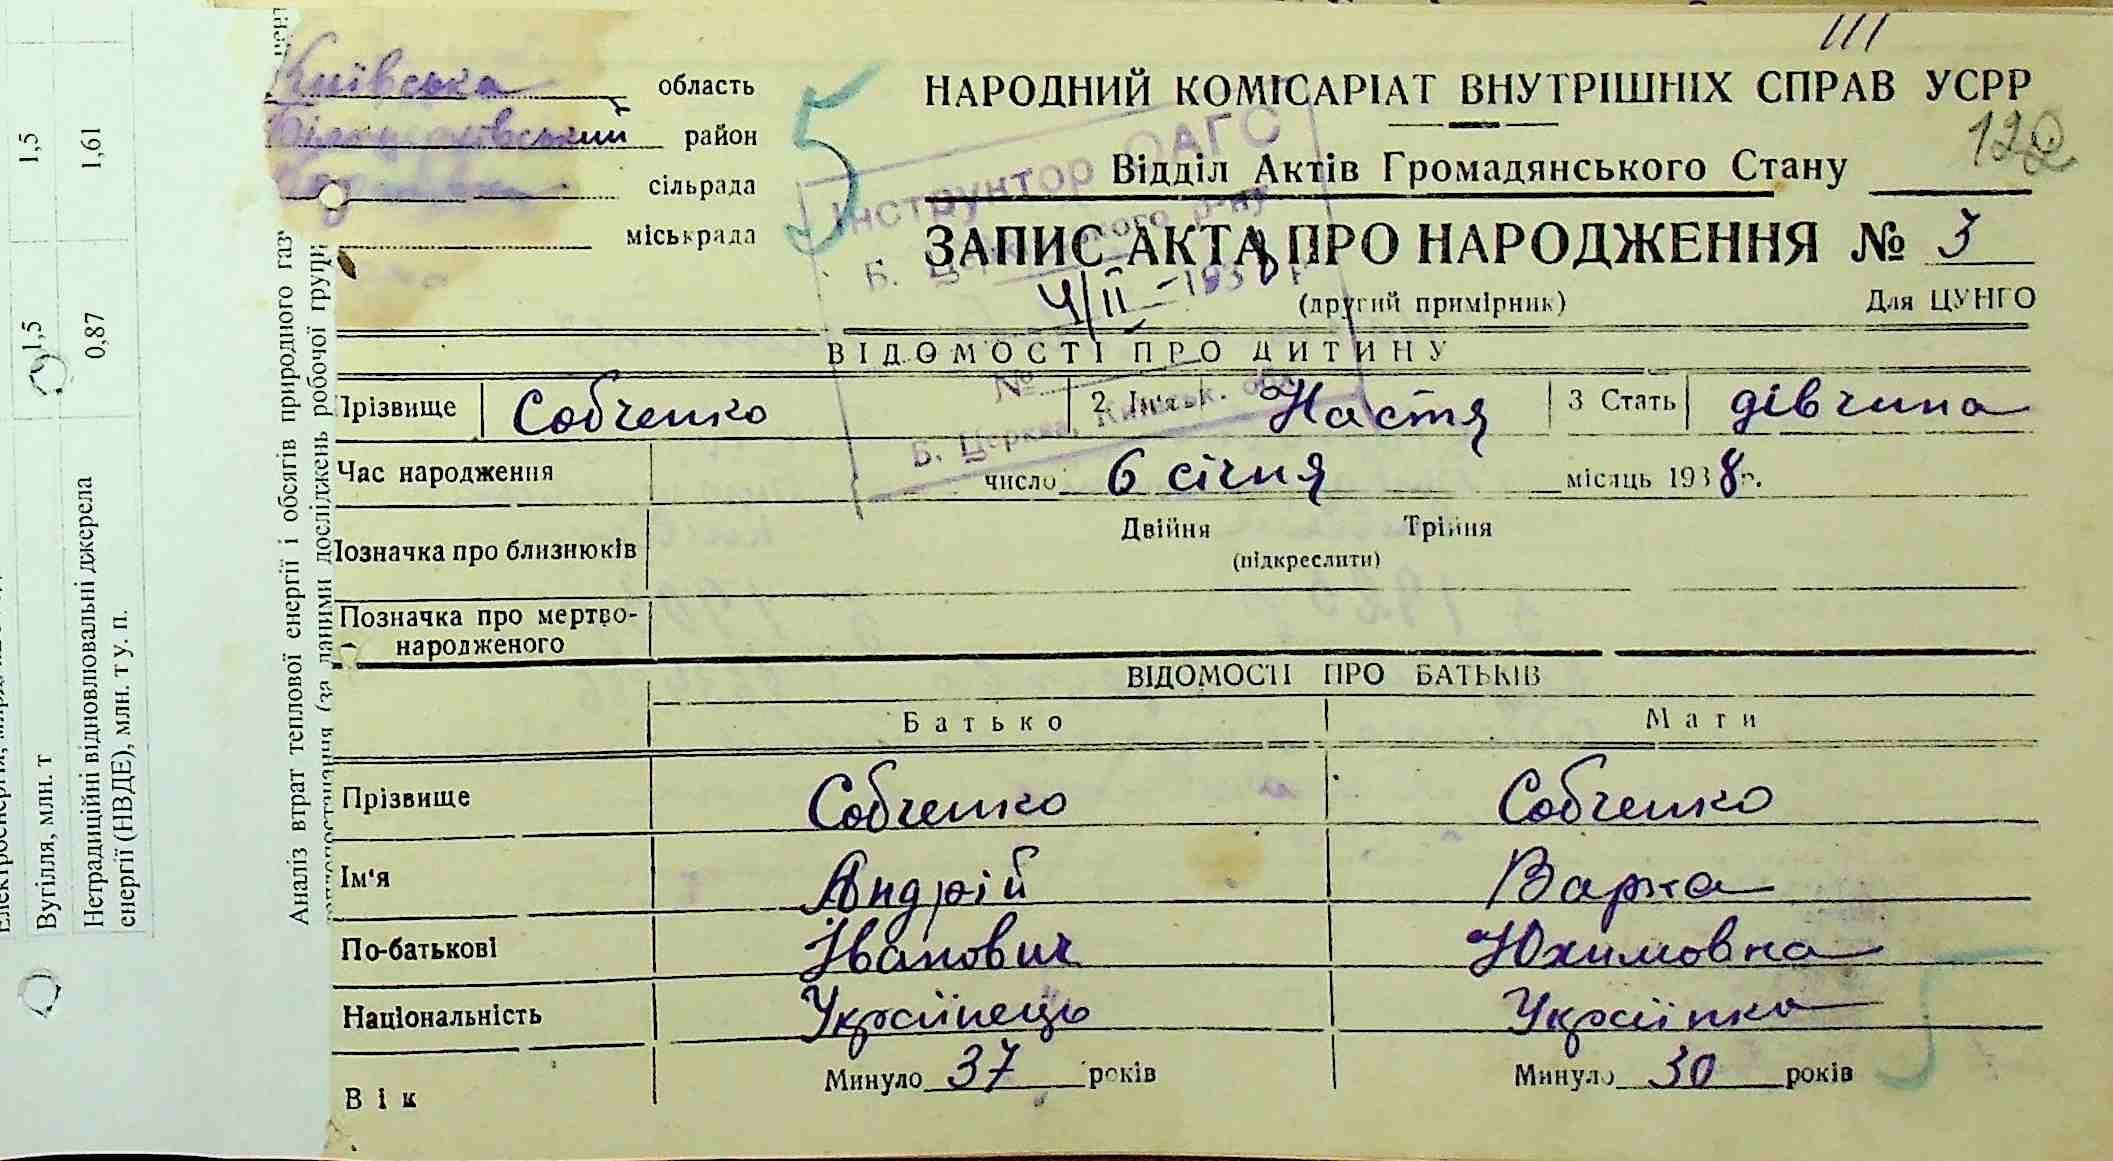 III
Київська область
Білоцерківський район
сільрада
міськрада
5
НАРОДНИЙ КОМІСАРІАТ ВНУТРІШНІХ СПРАВ УСРР
122
Відділ Актів Громадянського Стану
Інструктор ОАГС
Б. Церківського р-ну
ЗАПИС АКТА ПРО НАРОДЖЕННЯ № 3
4/II - 1938 р.
(другий примірник) Для ЦУНГО
№
Б. Церква, Київськ. обл.
ВІДОМОСТІ ПРО ДИТИНУ
Прізвище Собченко 2 Ім'я Настя 3 Стать дівчина
Час народження число 6 січня місяць 1938 р.
Позначка про близнюків Двійня Трійня
(підкреслити)
Позначка про мертво-
народженого
ВІДОМОСТІ ПРО БАТЬКІВ
Батько Мати
Прізвище Собченко Собченко
Ім'я Андрій Варка
По-батькові Іванович Юхимовна
Національність Українець Українка
Вік Минуло 37 років Минуло 30 років
5
Вугілля, млн. т 1,5 1,5
Нетрадиційні відновлювальні джерела 0,87 1,61
енергії (НВДЕ), млн. т у. п.
Аналіз втрат теплової енергії і обсягів природного газ
(за даними досліджень робочої групи